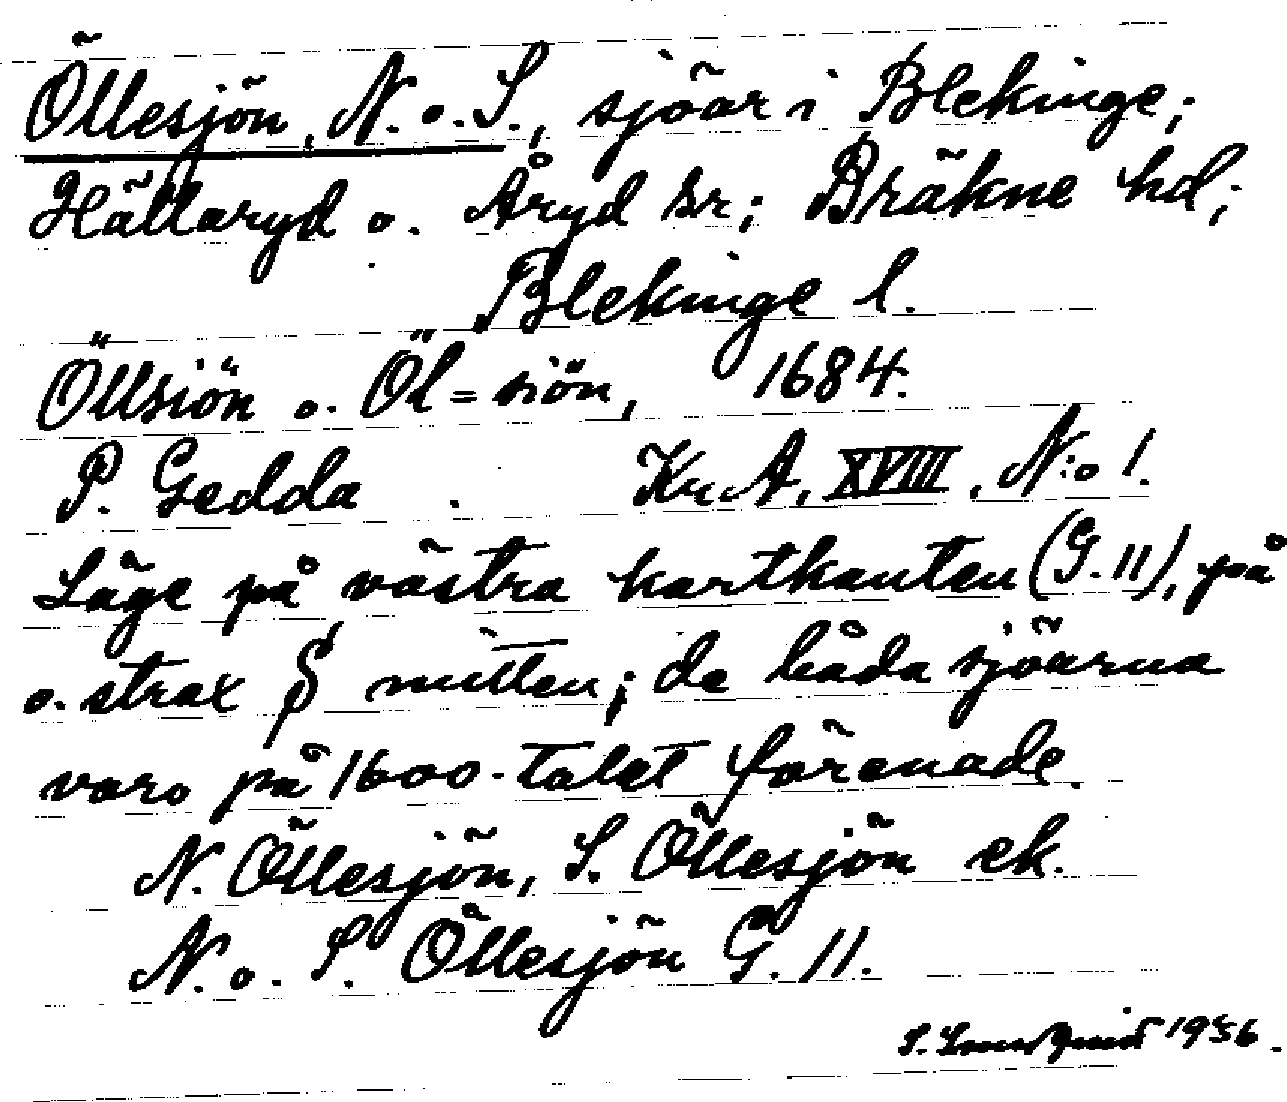 Öllesjön, N. o. S., sjöar i Blekinge;
Hällaryd o. Åryd sr; Bräkne hd;
Blekinge l.
Öllsiön o. Öl=siön, 1684.
P. Gedda. Kr. A, XVIII, N:o 1.
Läge på västra kartkanten (G. 11), på
o. strax § mitten; de båda sjöarna
voro på 1600-talet förenade.
N. Öllesjön, S. Öllesjön ek.
N. o. S. Öllesjön G. 11.
S. 1956.